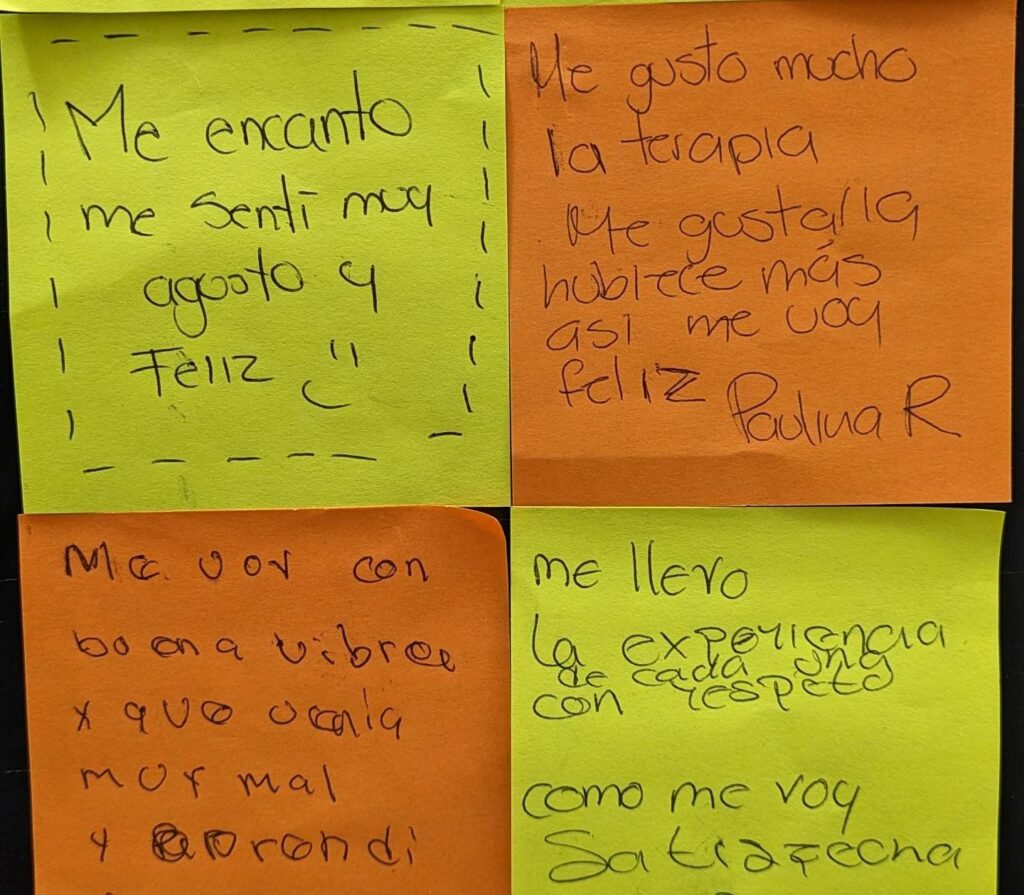 Me encanto
me sentí muy
agusto y
Feliz
Me gusto mucho
la terapia
Me gustaría
hubiece más
asi me voy
feliz
Paulina R
Me voy con
buena vibra
x que venia
muy mal
y aprendi
me llevo
la experiencia
de cada una
con respeto
como me voy
Satizfecha